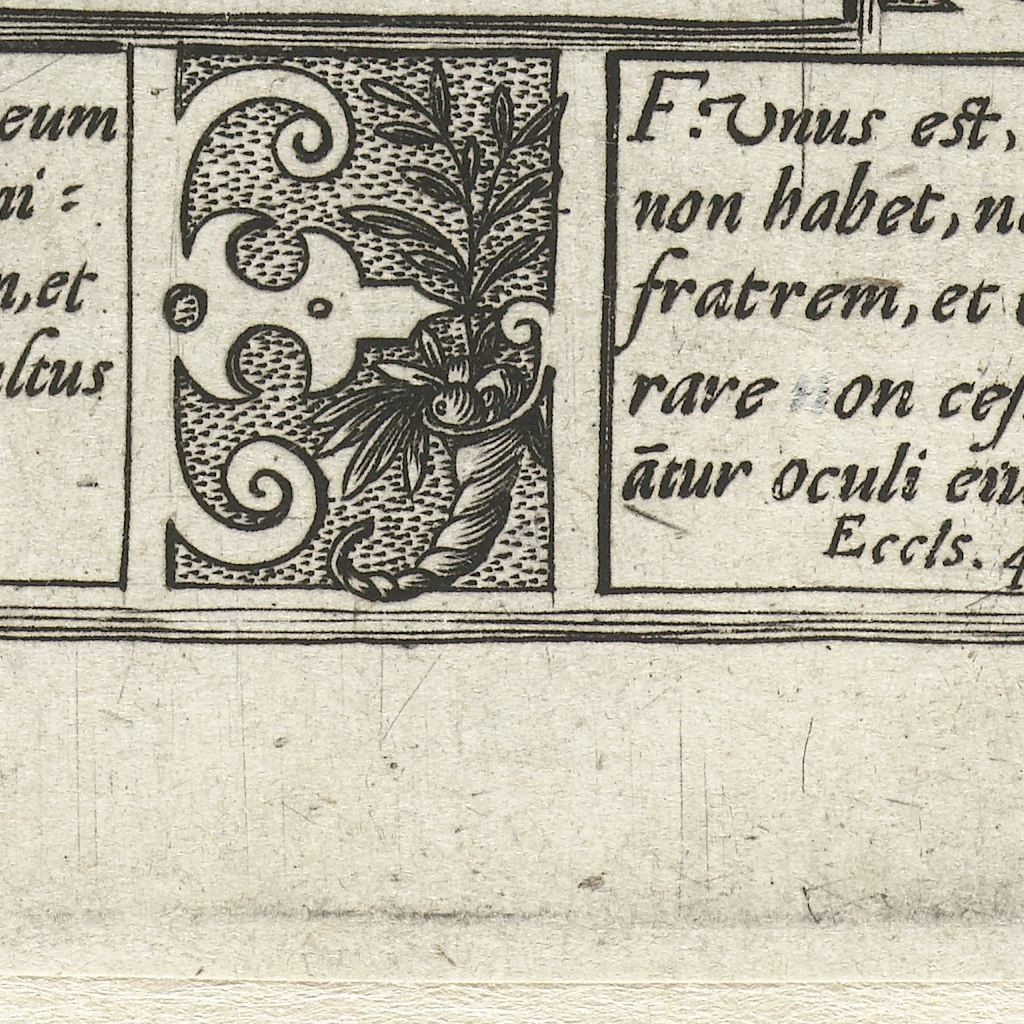 eum
n,et
F. Vnus est,
non habet,
fratrem, et
rare non
ātur oculi
Eccls. 4